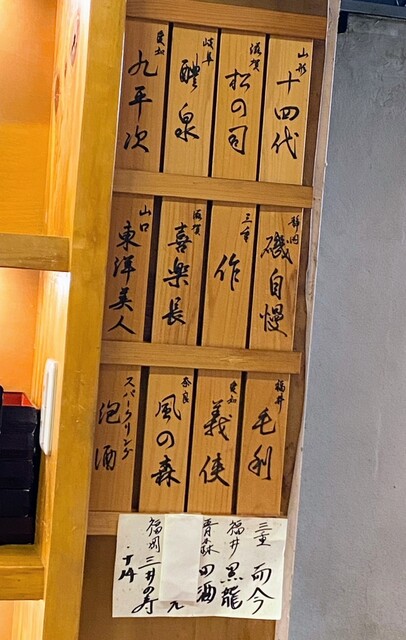 山形 十四代
滋賀 松の司
岐阜 醴泉
愛知 九平次
静岡 磯自慢
三重 作
滋賀 喜楽長
山口 東洋美人
福井 毛利
愛知 義侠
奈良 風の森
スパークリング 泡酒
三重 而今
福井 黒龍
青森 田酒
九
福岡 三井の寿